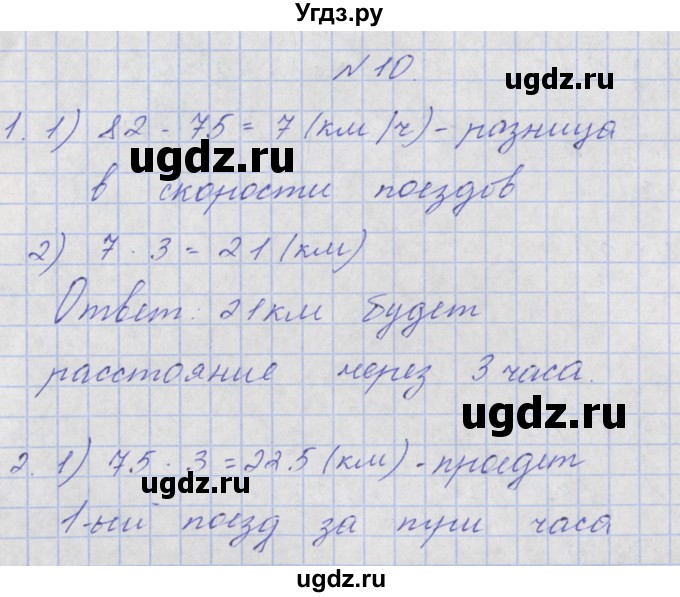 Угдз.ру
N 10.
ugdz.ru
1. 1) 82 - 75 = 7 (км/ч) - разница
ugdz.ru
в скорости поездов
2) 7 · 3 = 21 (км)
Ответ: 21 км будет
расстояние через 3 часа.
ugdz.ru
2. 1) 75 · 3 = 225 (км) - проедет
ugdz.ru
1-ый поезд за три часа
ugdz.ru